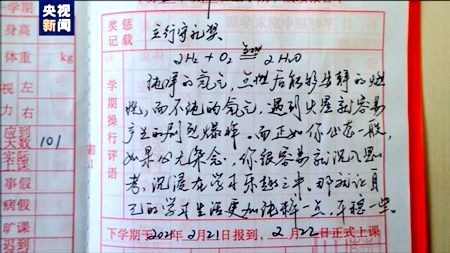 央视新闻
奖惩记载
立行守礼奖
2H₂ + O₂ 点燃 2H₂O
学期操行评语
纯净的氢气,点燃后能够安静的燃
烧,而不纯的氢气,遇到火星就容易
产生的剧烈爆炸。而正如你一般,
如果心无杂念,你很容易就沉入思
考,沉浸在学习乐趣之中。那就让自
己的学习生活更加纯粹一点,平稳一些。
下学期于2021年2月21日报到,2月22日正式上课
体重 kg
视 左
力 右
应到天数 101
事假
病假
旷课
迟到